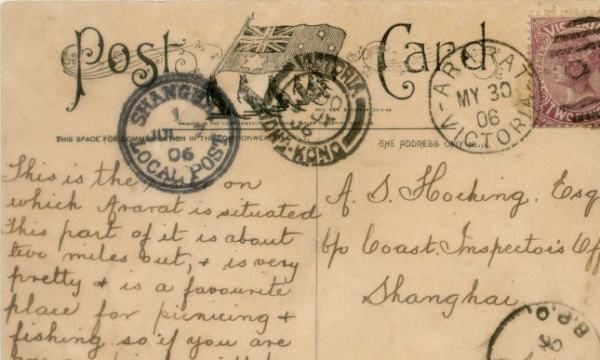 Post Card
SHANGHAI
1
JUL
06
LOCAL POST
VICTORIA
HONG-KONG
ARARAT
MY 30
06
VICTORIA
VICTORIA
TWO
THIS SPACE FOR COMMUNICATION IN THE COMMONWEALTH ONLY
THE ADDRESS ONLY
This is the on
which Ararat is situated
This part of it is about
two miles out, + is very
pretty + is a favourite
place for picnicing +
fishing so if you are
A. S. Hocking. Esq
c/o Coast. Inspector's Off
Shanghai
B.P.O.